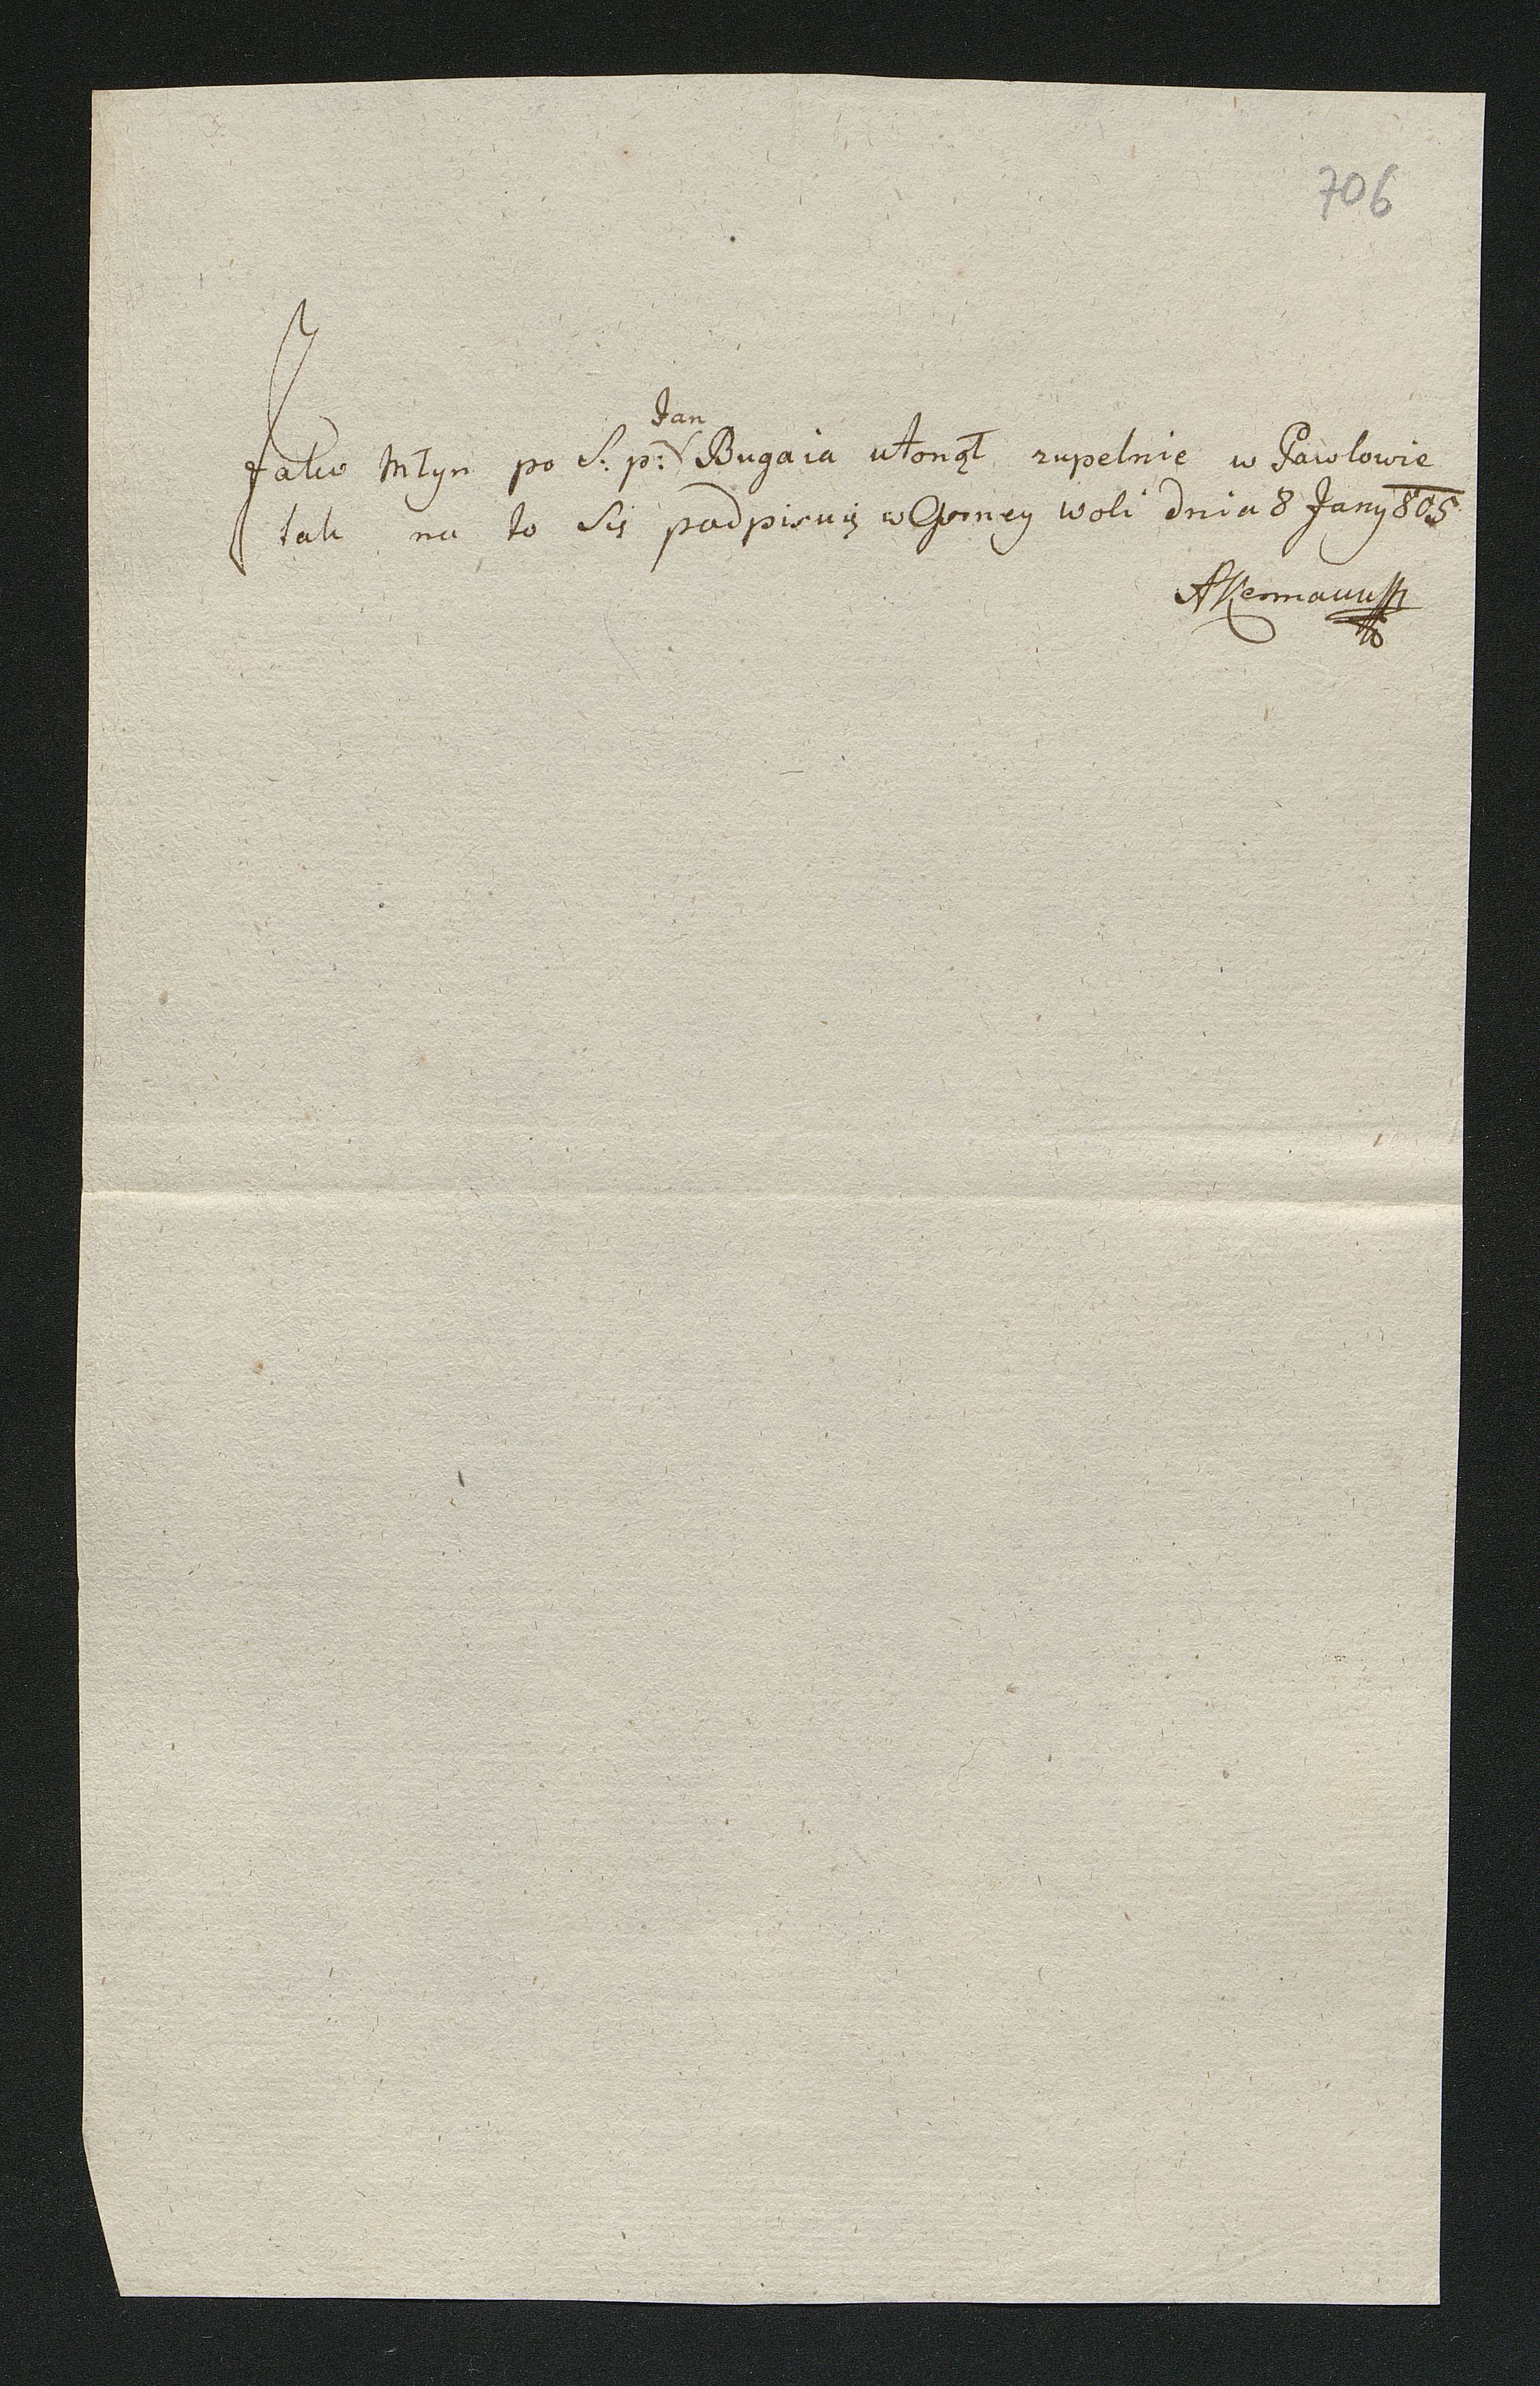 706
Jan
Jako Młyn po S: p: Bugaia utonął zupelnie w Pawlowie
tak na to Się podpisuię w Gorney woli dnia 8 Jany 805
AKermann